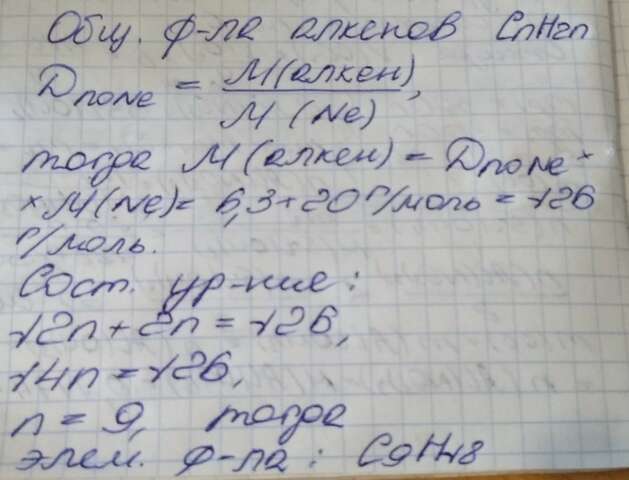 Общ. ф-ла алкенов CnH2n
DпоNe = M(алкен),
M (Ne)
тогда M(алкен) = DпоNe ×
× M(Ne) = 6,3 * 20 г/моль = 126
г/моль.
Сост. ур-ние:
12n + 2n = 126,
14n = 126,
n = 9, тогда
элем. ф-ла: C9H18